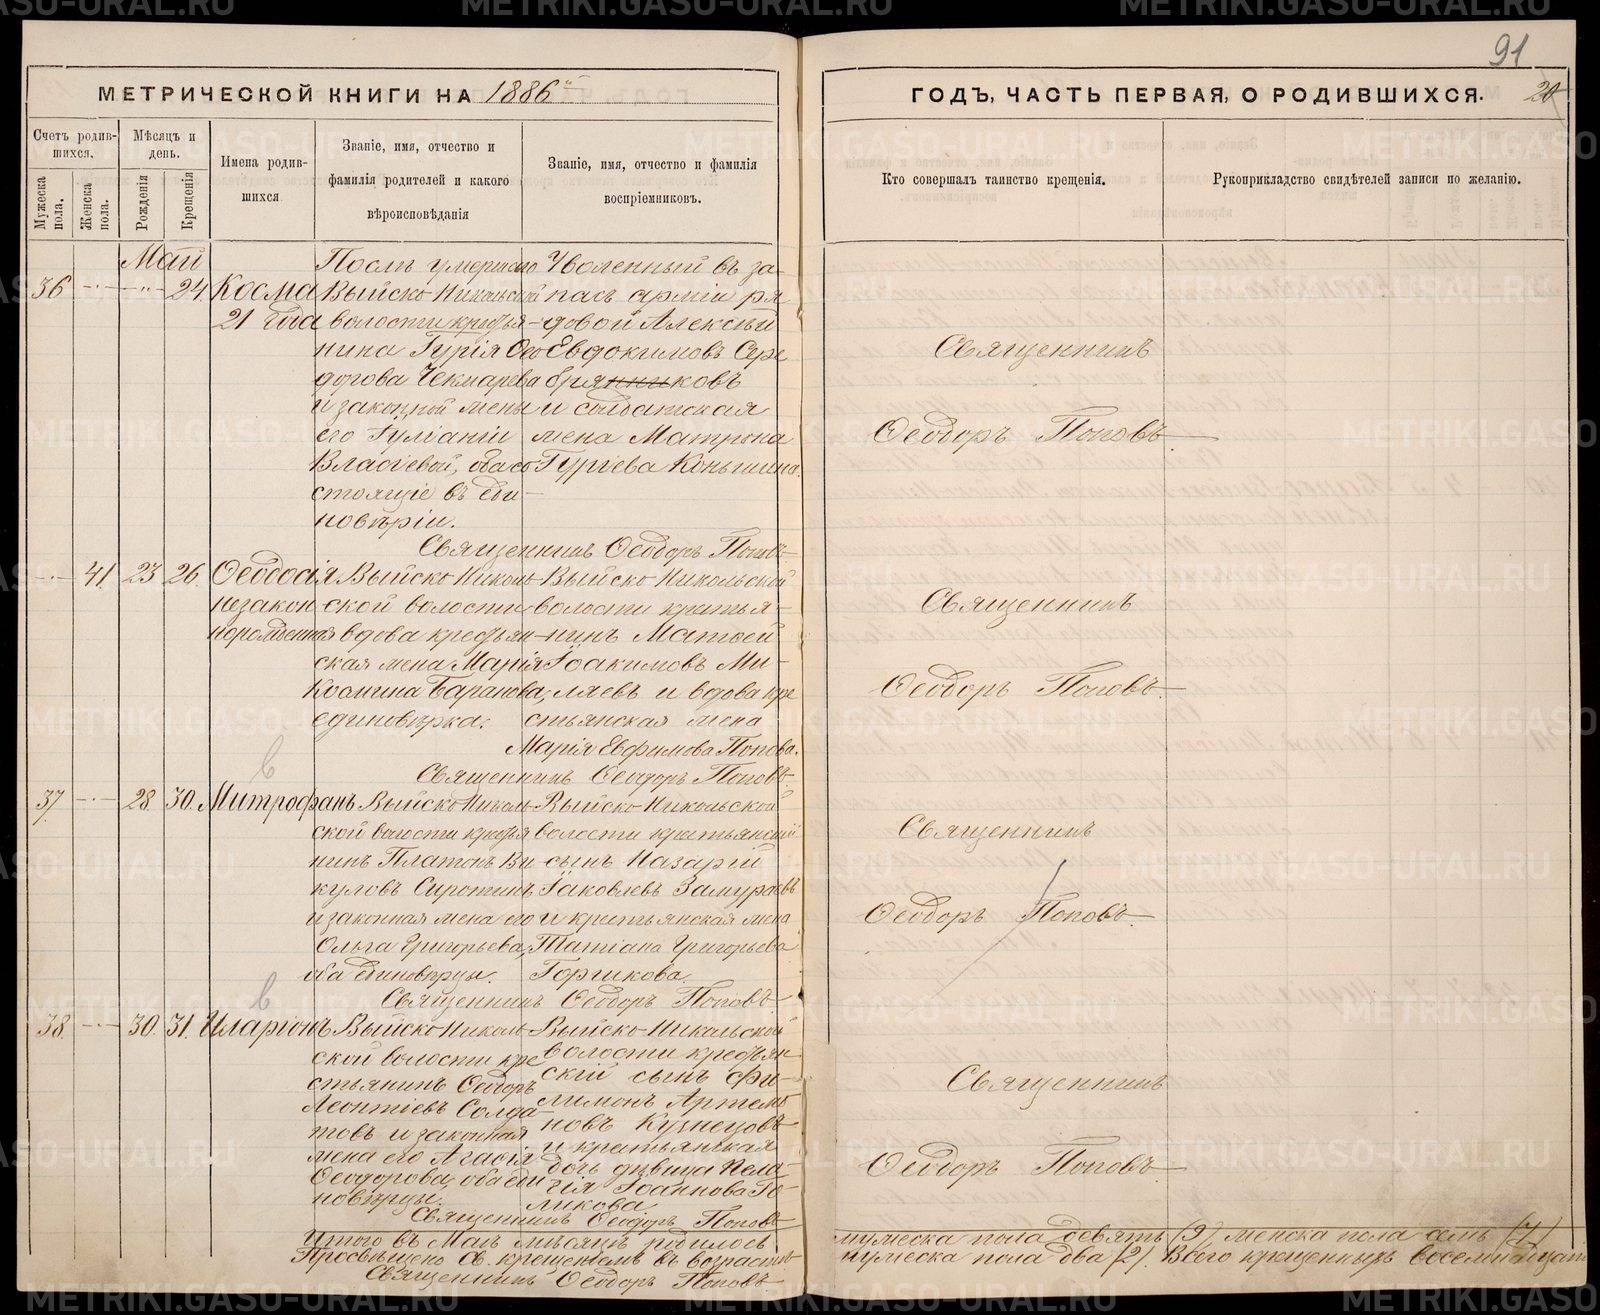 91
МЕТРИЧЕСКОЙ КНИГИ НА 1886й
ГОДЪ, ЧАСТЬ ПЕРВАЯ, О РОДИВШИХСЯ.
20
Счетъ родив-
шихся.
Мужеска пола.
Женска пола.
Мѣсяцъ и
день.
Рожденія
Крещенія
Имена родив-
шихся
Званіе, имя, отчество и
фамилія родителей и какого
вѣроисповѣданія
Званіе, имя, отчество и фамилія
воспріемниковъ.
Кто совершалъ таинство крещенія.
Рукоприкладство свидѣтелей записи по желанію.
Май
36 24
Косма
21 года
Послѣ умершаго
Выйско-Никольской
волости крестья-
нина Гурія Ѳео
дорова Чекмарева
и законной жены
его Іуліаніи
Власіевой, оба со
стоящіе въ еди-
новѣріи.
Уволенный въ за-
пасъ арміи ря
довой Алексѣй
Евдокимовъ Сере
бряниковъ
и солдатская
жена Матрона
Гуріева Коньшина.
Священникъ
Ѳеодоръ Поповъ
Священникъ Ѳеодоръ Поповъ
41. 23 26.
Ѳеодосія
незакон
норожденная
Выйско-Николь
ской волости
вдова крестьян-
ская жена Марія
Космина Баранова,
единовѣрка.
Выйско-Никольской
волости крестья-
нинъ Матѳей
Іоакимовъ Ми-
ляевъ и вдова кре
стьянская жена
Марія Евфимова Попова.
Священникъ
Ѳеодоръ Поповъ.
Священникъ Ѳеодоръ Поповъ.
37. 28 30.
Митрофанъ
Выйско-Николь
ской волости крестья
нинъ Платонъ Ви
куловъ Сиротинъ
и законная жена его
Ольга Григорьева,
оба единовѣрцы.
Выйско-Никольской
волости крестьянскій
сынъ Назарій
Іаковлевъ Замураевъ
и крестьянская жена
Татіана Григорьева
Горшкова
Священникъ
Ѳеодоръ Поповъ.
Священникъ Ѳеодоръ Поповъ.
38. 30. 31.
Иларіонъ
Выйско-Николь
ской волости кре
стьянинъ Ѳеодоръ
Леонтіевъ Солда-
товъ и законная
жена его Агасія
Ѳеодорова, оба еди
новѣрцы.
Выйско-Никольской
волости крестьян
скій сынъ Фи-
лимонъ Артемь
новъ Кузнецовъ
и крестьянская
дочь дѣвица Пела-
гія Іоаннова Го-
ликова.
Священникъ
Ѳеодоръ Поповъ
Священникъ Ѳеодоръ Поповъ
Итого въ Маѣ мѣсяцѣ родилось мужеска пола девять (9), женска пола семь (7)
Просвѣщено Св. крещеніемъ въ возрастѣ мужеска пола два (2). Всего крещенныхъ восемнадцать
Священникъ Ѳеодоръ Поповъ
METRIKI.GASO-URAL.RU